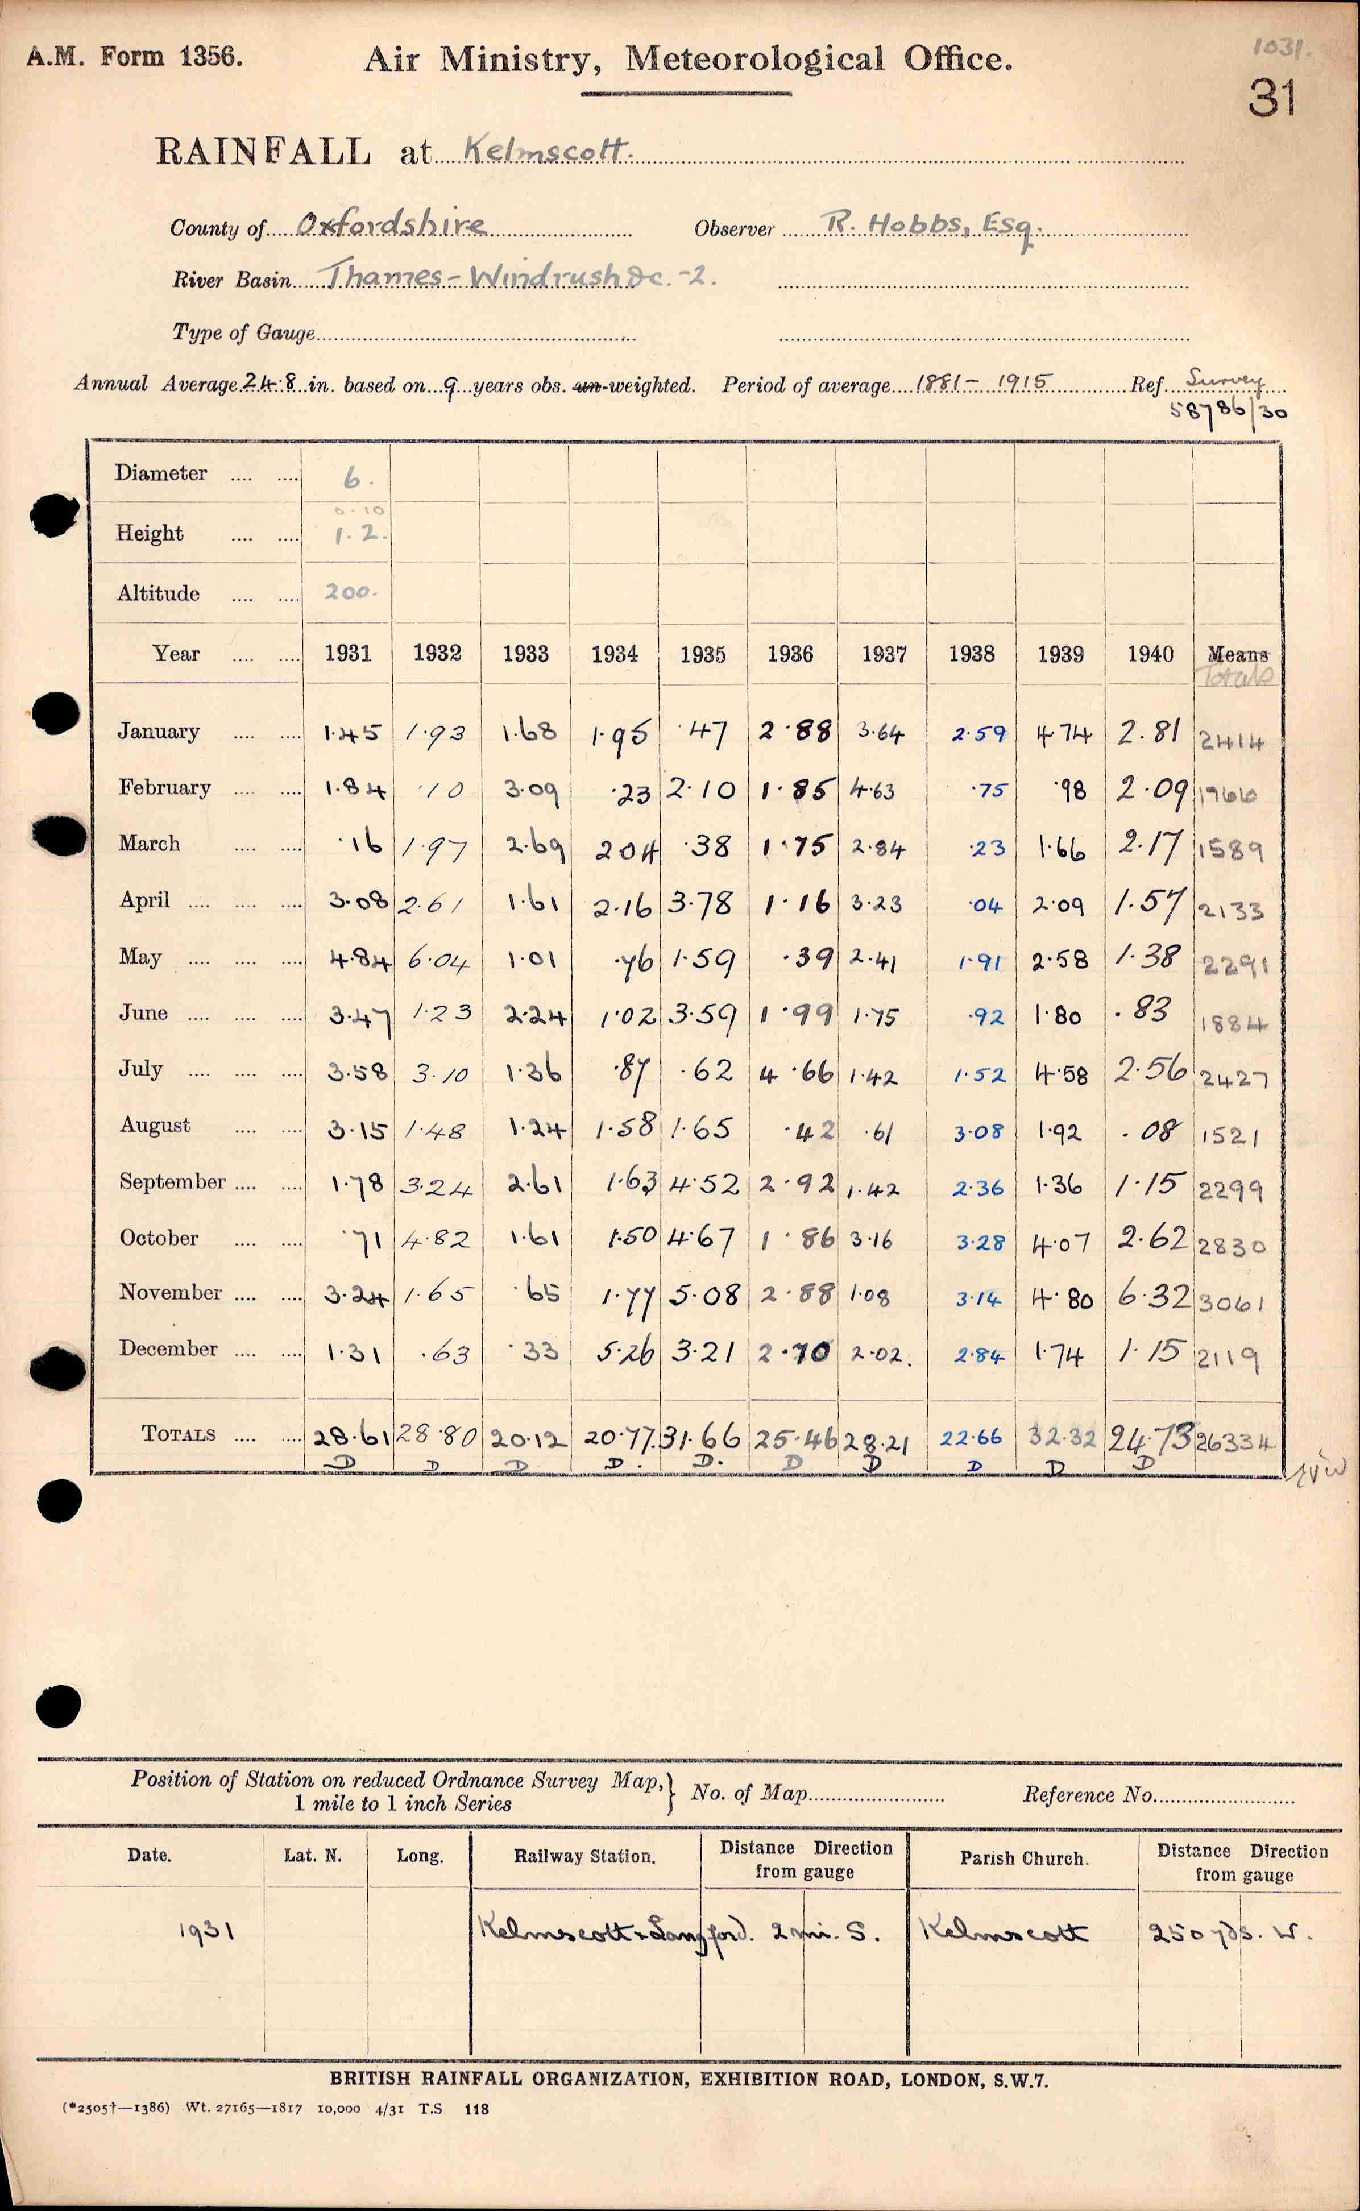 A.M. Form 1356.
Air Ministry, Meteorological Office.
1031.
31
RAINFALL at Kelmscott.
County of Oxfordshire Observer R. Hobbs, Esq.
River Basin Thames-Windrush &c. -2.
Type of Gauge
Annual Average 24.8 in. based on 9 years obs. un-weighted. Period of average 1881-1915 Ref. Survey
58786/30
Diameter 6.
0.10
Height 1.2.
Altitude 200.
Year 1931 1932 1933 1934 1935 1936 1937 1938 1939 1940 Means
Totals
January 1.45 1.93 1.68 1.95 .47 2.88 3.64 2.59 4.74 2.81 2414
February 1.84 .10 3.09 .23 2.10 1.85 4.63 .75 .98 2.09 1766
March .16 1.97 2.69 2.04 .38 1.75 2.84 .23 1.66 2.17 1589
April 3.08 2.61 1.61 2.16 3.78 1.16 3.23 .04 2.09 1.57 2133
May 4.84 6.04 1.01 .76 1.59 .39 2.41 1.91 2.58 1.38 2291
June 3.47 1.23 2.24 1.02 3.59 1.99 1.75 .92 1.80 .83 1884
July 3.58 3.10 1.36 .87 .62 4.66 1.42 1.52 4.58 2.56 2427
August 3.15 1.48 1.24 1.58 1.65 .42 .61 3.08 1.92 .08 1521
September 1.78 3.24 2.61 1.63 4.52 2.92 1.42 2.36 1.36 1.15 2299
October .71 4.82 1.61 1.50 4.67 1.86 3.16 3.28 4.07 2.62 2830
November 3.24 1.65 .65 1.77 5.08 2.88 1.08 3.14 4.80 6.32 3061
December 1.31 .63 .33 5.26 3.21 2.70 2.02. 2.84 1.74 1.15 2119
TOTALS 28.61 28.80 20.12 20.77. 31.66 25.46 28.21 22.66 32.32 24.73 26334
D D D D. D. D D D D D
Position of Station on reduced Ordnance Survey Map, } No. of Map Reference No.
1 mile to 1 inch Series
Date. Lat. N. Long. Railway Station. Distance Direction from gauge Parish Church. Distance Direction from gauge
1931 Kelmscott & Langford. 2 mi. S. Kelmscott 250 yds. W.
BRITISH RAINFALL ORGANIZATION, EXHIBITION ROAD, LONDON, S.W.7.
(*2505†—1386) Wt. 27165—1817 10,000 4/31 T.S 118